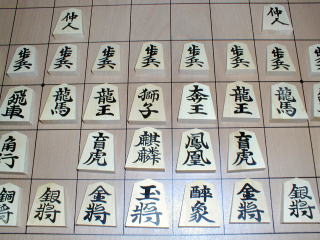 仲人 仲人
歩兵 歩兵 歩兵 歩兵 歩兵 歩兵 歩兵 歩兵
飛車 龍馬 龍王 獅子 奔王 龍王 龍馬
角行 盲虎 麒麟 鳳凰 盲虎
銅將 銀將 金將 玉將 醉象 金將 銀將